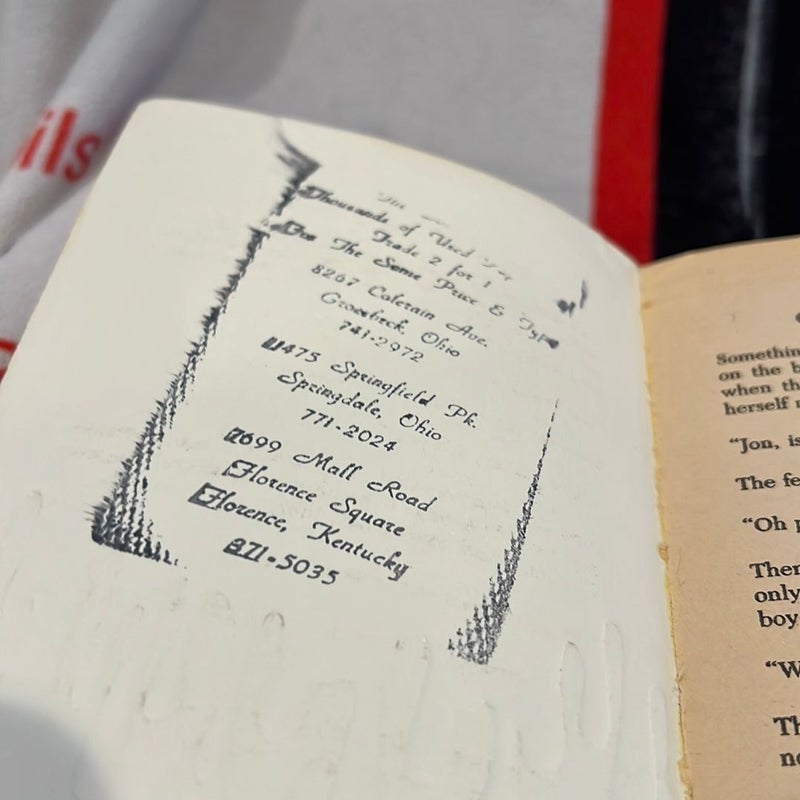 ils
The
Thousands of Used
Trade 2 for 1
For The Same Price & Type
8267 Colerain Ave.
Groesbeck, Ohio
741-2972
11475 Springfield Pk.
Springdale, Ohio
771-2024
7699 Mall Road
Florence Square
Florence, Kentucky
371-5035
Somethin
on the b
when th
herself
“Jon, is
The fe
“Oh
Ther
only
boy
“W
Th